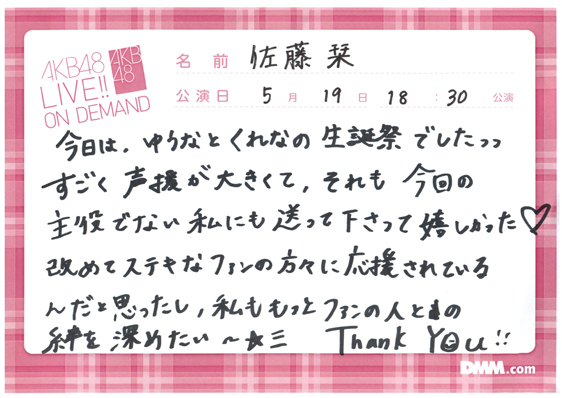 AKB48
LIVE!!
ON DEMAND
AKB
48
名前 佐藤 栞
公演日 5月 19日 18:30 公演
今日は、ゆうなとくれなの生誕祭でしたっっ
すごく声援が大きくて、それも今回の
主役でない私にも送って下さって嬉しかった♡
改めてステキなファンの方々に応援されている
んだと思ったし、私ももっとファンの人との
絆を深めたい〜☆三 Thank You!!
DMM.com